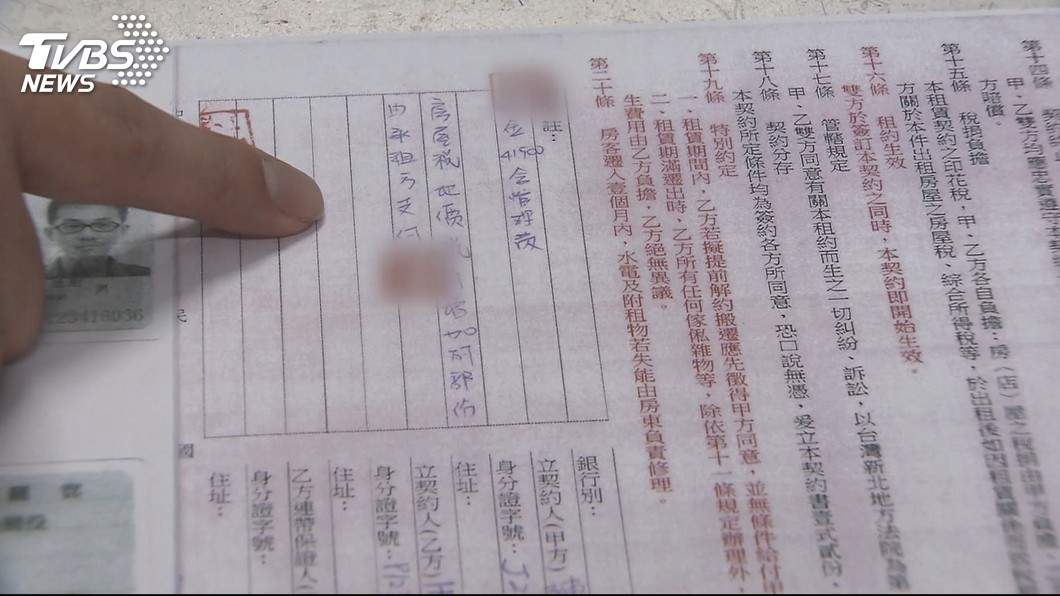 TVBS
NEWS
第十四條
甲、乙雙方均應忠實遵守本契
方賠償。
第十五條 稅捐負擔
本租賃契約之印花稅，甲、乙方各自負擔：房〈店〉屋之稅捐由甲方負擔
方關於本件出租房屋之房屋稅、綜合所得稅等，於出租後如因租賃關係
第十六條 租約生效
雙方於簽訂本契約之同時，本契約即開始生效。
第十七條 管轄規定
甲、乙雙方同意有關本租約而生之一切糾紛、訴訟，以台灣新北地方法院為第
第十八條 契約分存
本契約所定條件均為簽約各方所同意，恐口說無憑，爰立本契約書壹式貳份，
第十九條 特別約定
一、租賃期間內，乙方若擬提前解約搬遷應先徵得甲方同意，並無條件給付甲
二、租賃期滿遷出時，乙方所有任何傢俬雜物等，除依第十一條規定辦理外，
生費用由乙方負擔，乙方絕無異議。
第二十條 房客遷入壹個月內，水電及附租物若失能由房東負責修理。
註：
金41500含管理費
房屋稅 地價稅
增加的部份
由承租方支付
銀行別：
立契約人(甲方)
身分證字號：
住址：
立契約人(乙方)
身分證字號：
住址：
乙方連帶保證人(
身分證字號：
住址：
民
國